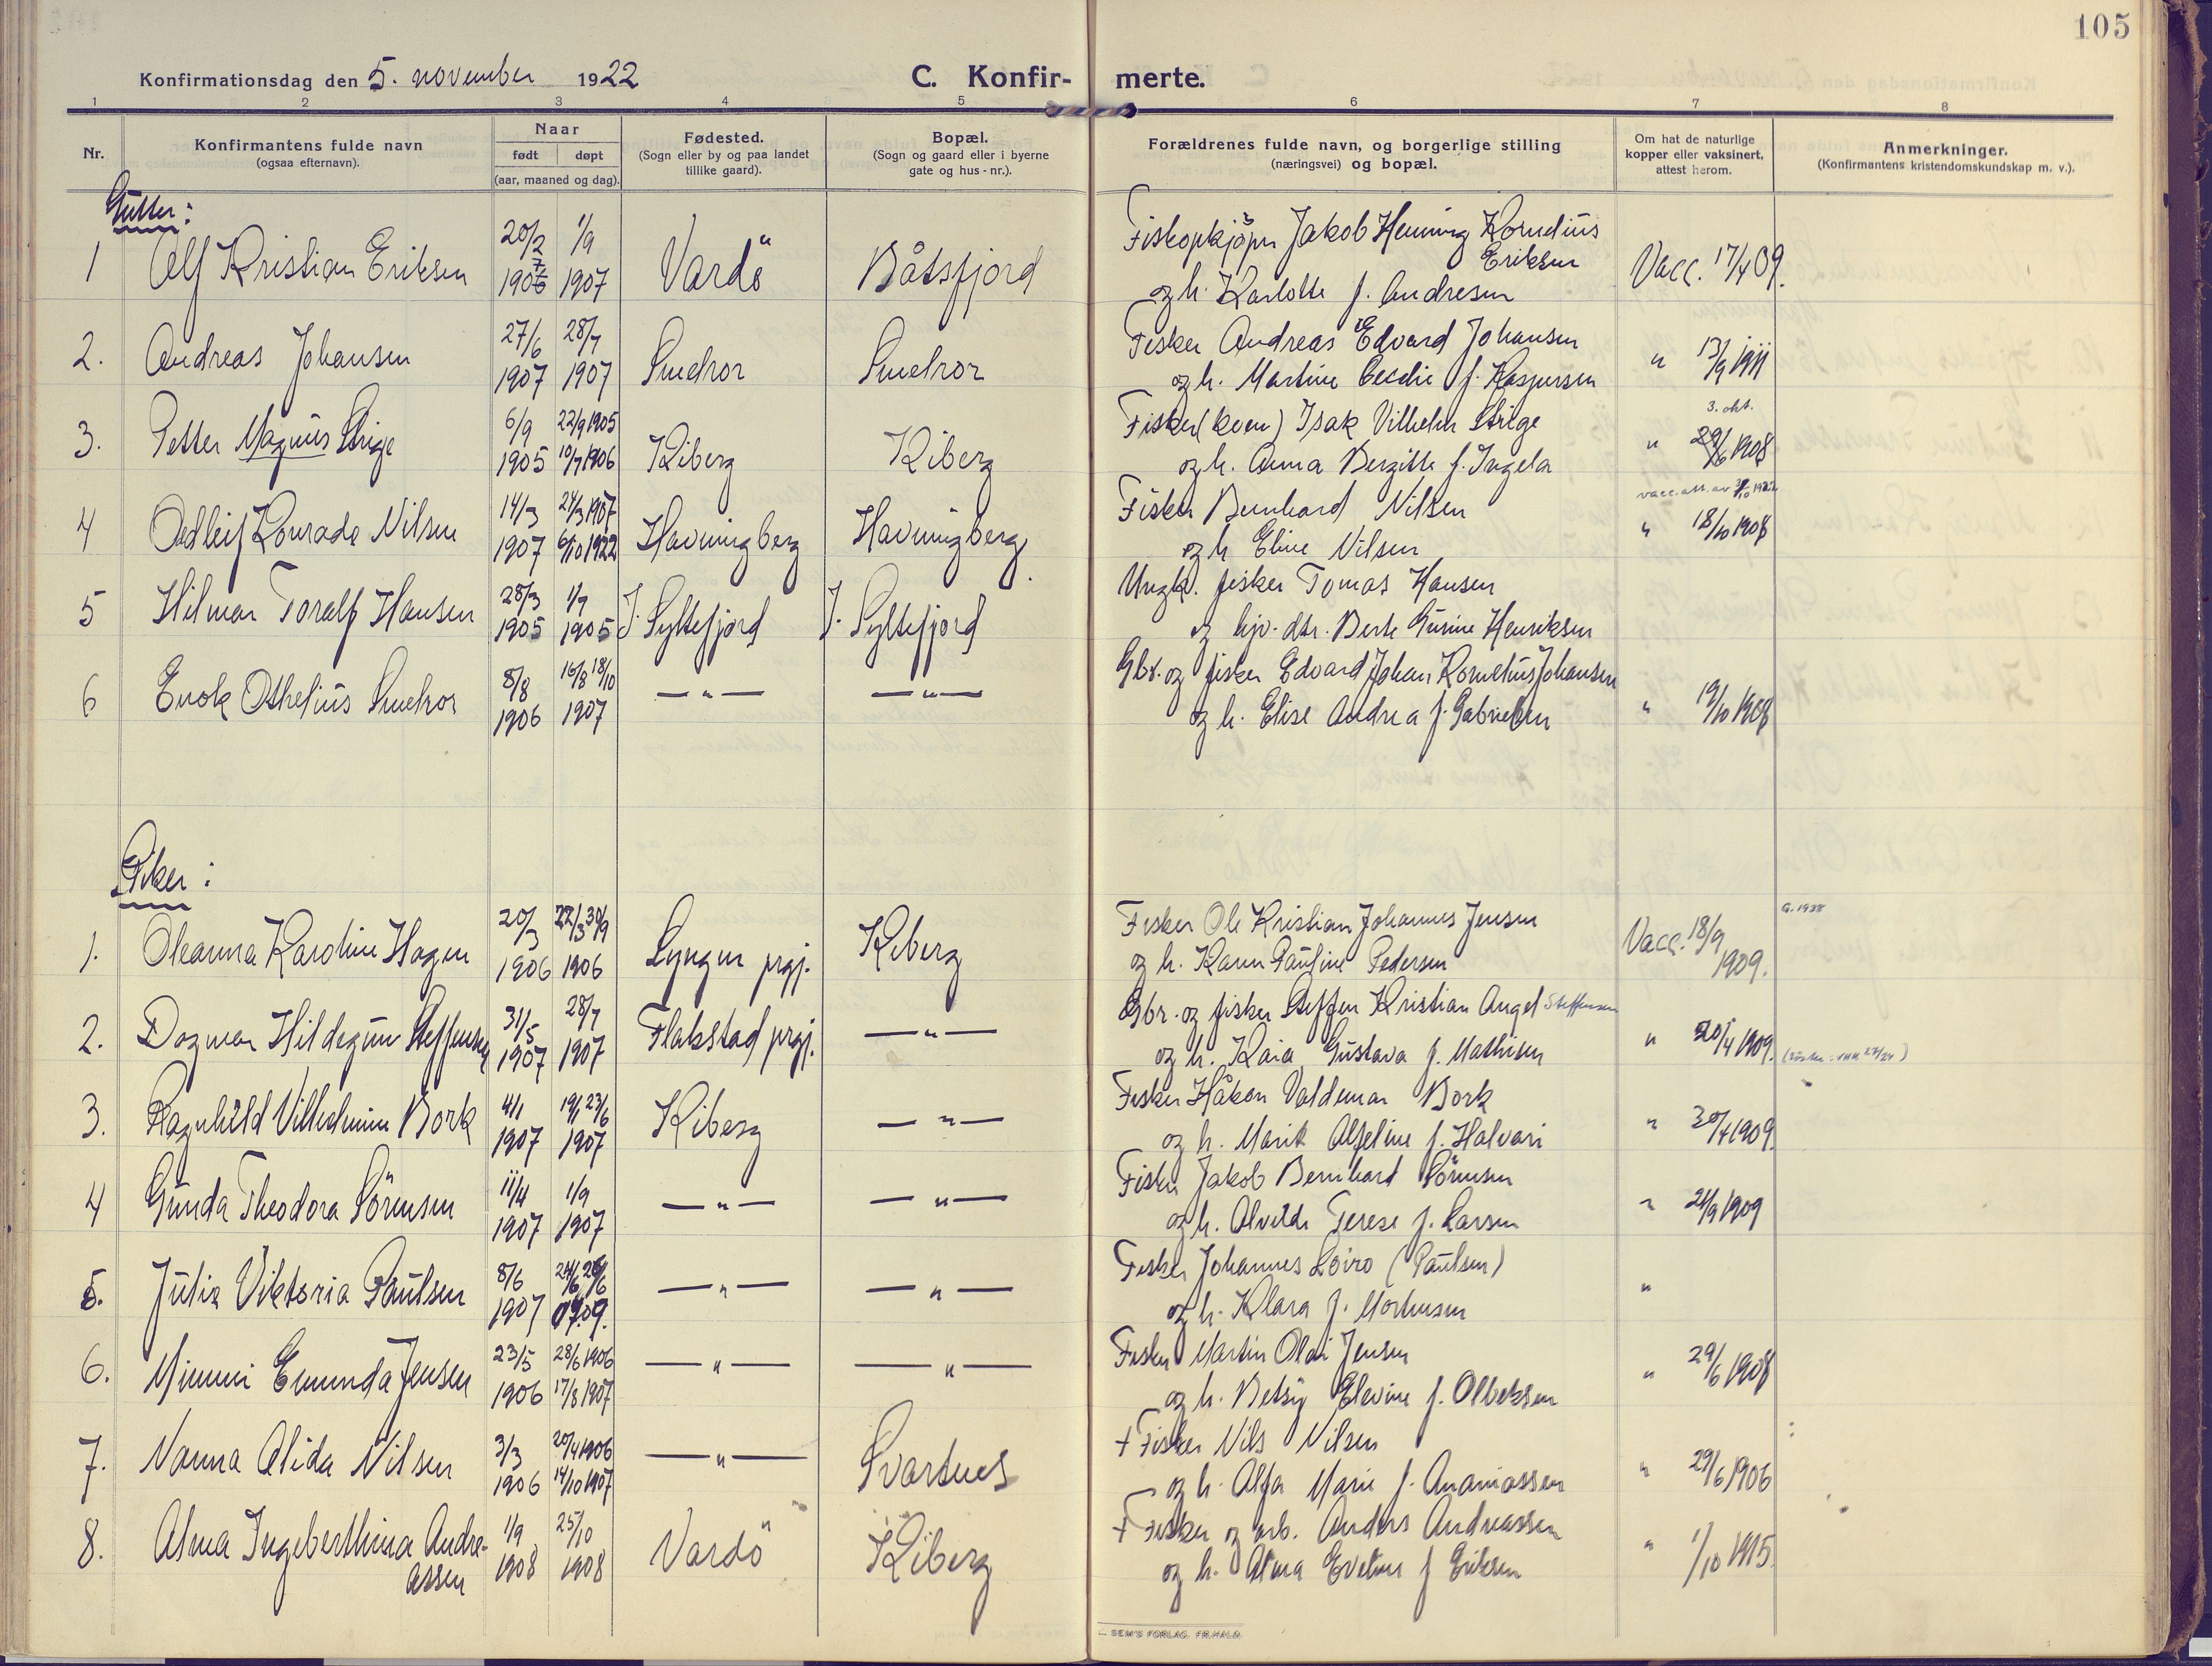 105
Konfirmationsdag den 5. november 1922
C. Konfir- merte.
1 2 3 4 5 6 7 8
Nr.
Konfirmantens fulde navn
(ogsaa efternavn).
Naar
født døpt
(aar, maaned og dag).
Fødested.
(Sogn eller by og paa landet
tillike gaard).
Bopæl.
(Sogn og gaard eller i byerne
gate og hus-nr.).
Forældrenes fulde navn, og borgerlige stilling
(næringsvei) og bopæl.
Om hat de naturlige
kopper eller vaksinert,
attest herom.
Anmerkninger.
(Konfirmantens kristendomskundskap m. v.).
Gutter:
1 Alf Kristian Eriksen 20/2 1/9 1907 Vardö Båtsfjord Fiskopkjöper Jakob Henning Kornelius
Eriksen
og h. Karlotte f. Andresen Vacc. 17/4 09.
2. Andreas Johansen 27/6 28/7 Smelror Smelror Fisker Andreas Edvard Johansen
1907 1907 og h. Martine Cecelie f. Kaspersen " 13/9 1911
3. Petter Magnus Strige 6/9 22/9 1905 Kiberg Kiberg Fisker (kven) Isak Vilhelm Strige 3. okt.
1905 10/7 1906 og h. Anna Bergitte f. Ingela " 29/6 1908
4 Oddleif Konrade Nilsen 14/3 24/3 1907 Havningberg Havningberg. Fisker Bernhard Nilsen vacc.att. av 1922
1907 6/10 1922 og h Eline Nilsen " 18/10 1908
5 Hilmar Toralf Hansen 28/3 1/9 J. Syltefjord J. Syltefjord Ungk. fisker Tomas Hansen
1905 1905 og hjv. dtr. Berte Gurine Henriksen
6 Enok Othelius Smelror 8/8 16/8 18/10 — " — — " — Gbr. og fisker Edvard Johan Kornelius Johansen
1906 1907 og h. Elise Andrea f. Gabrielsen " 19/10 1908
Piker:
1. Oleanna Karoline Hagen 20/3 22/3 30/9 Lyngen prgj. Kiberg Fisker Ole Kristian Johannes Jensen Vacc. 18/9 G. 1938
1906 1906 og h. Karen Pauline Pedersen 1909.
2. Dagmar Hildegun Steffensen 31/5 28/7 Flakstad prgj. — " — Gbr. og fisker Steffen Kristian Angel Steffensen
1907 1907 og h. Kaia Gustava f. Mathisen " 20/4 1909.
3. Ragnhild Vilhelmine Bork 4/1 19/1 23/6 Kiberg — " — Fisker Håkon Valdemar Bork
1907 1907 og h. Marit Alfeline f. Halvari " 30/4 1909.
4 Gunda Theodora Sörensen 11/4 1/9 — " — — " — Fisker Jakob Bernhard Sörensen
1907 1907 og h. Alvilde Terese f. Larsen " 24/9 1909
5. Julia Viktoria Paulsen 8/6 24/6 26/6 — " — — " — Fisker Johannes Loiro (Paulsen)
1907 07.09. og h. Klara f. Mortensen "
6. Mimmi Emunda Jensen 23/5 28/6 1906 — " — — " — Fisker Martin Olai Jensen
1906 17/8 1907 og h. Betsy Elevine f. Olbeksen " 29/6 1908
7. Nanna Alida Nilsen 3/3 20/4 1906 — " — Svartnes + Fisker Nils Nilsen
1906 14/10 1907 og h. Alfa Marie f. Ananiassen " 29/6 1906
8. Alma Ingeberthina Andre- 1/9 25/10 Vardö Kiberg + Fisker og arb. Anders Andreassen
assen 1908 1908 og h. Alma Eveline f Eriksen " 1/10 1915.
SEM'S FORLAG. FR.HALD.